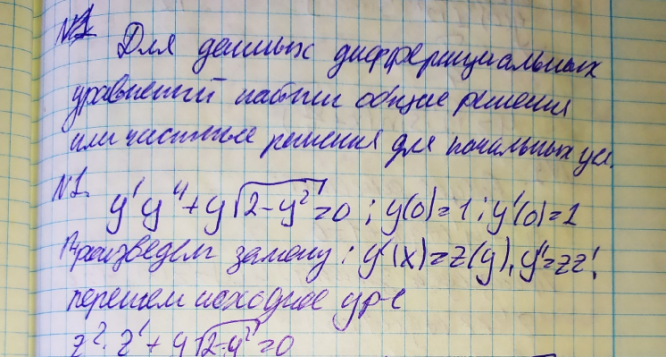 №1
Для данных дифференциальных
уравнений найти общие решения
или частные решения для начальных усл.
№1. y'y''+y√(2-y²)=0; y(0)=1; y'(0)=1
Произведем замену: y'(x)=z(y), y''=zz',
перепишем исходное ур-е
z²·z'+y√(2-y²)=0